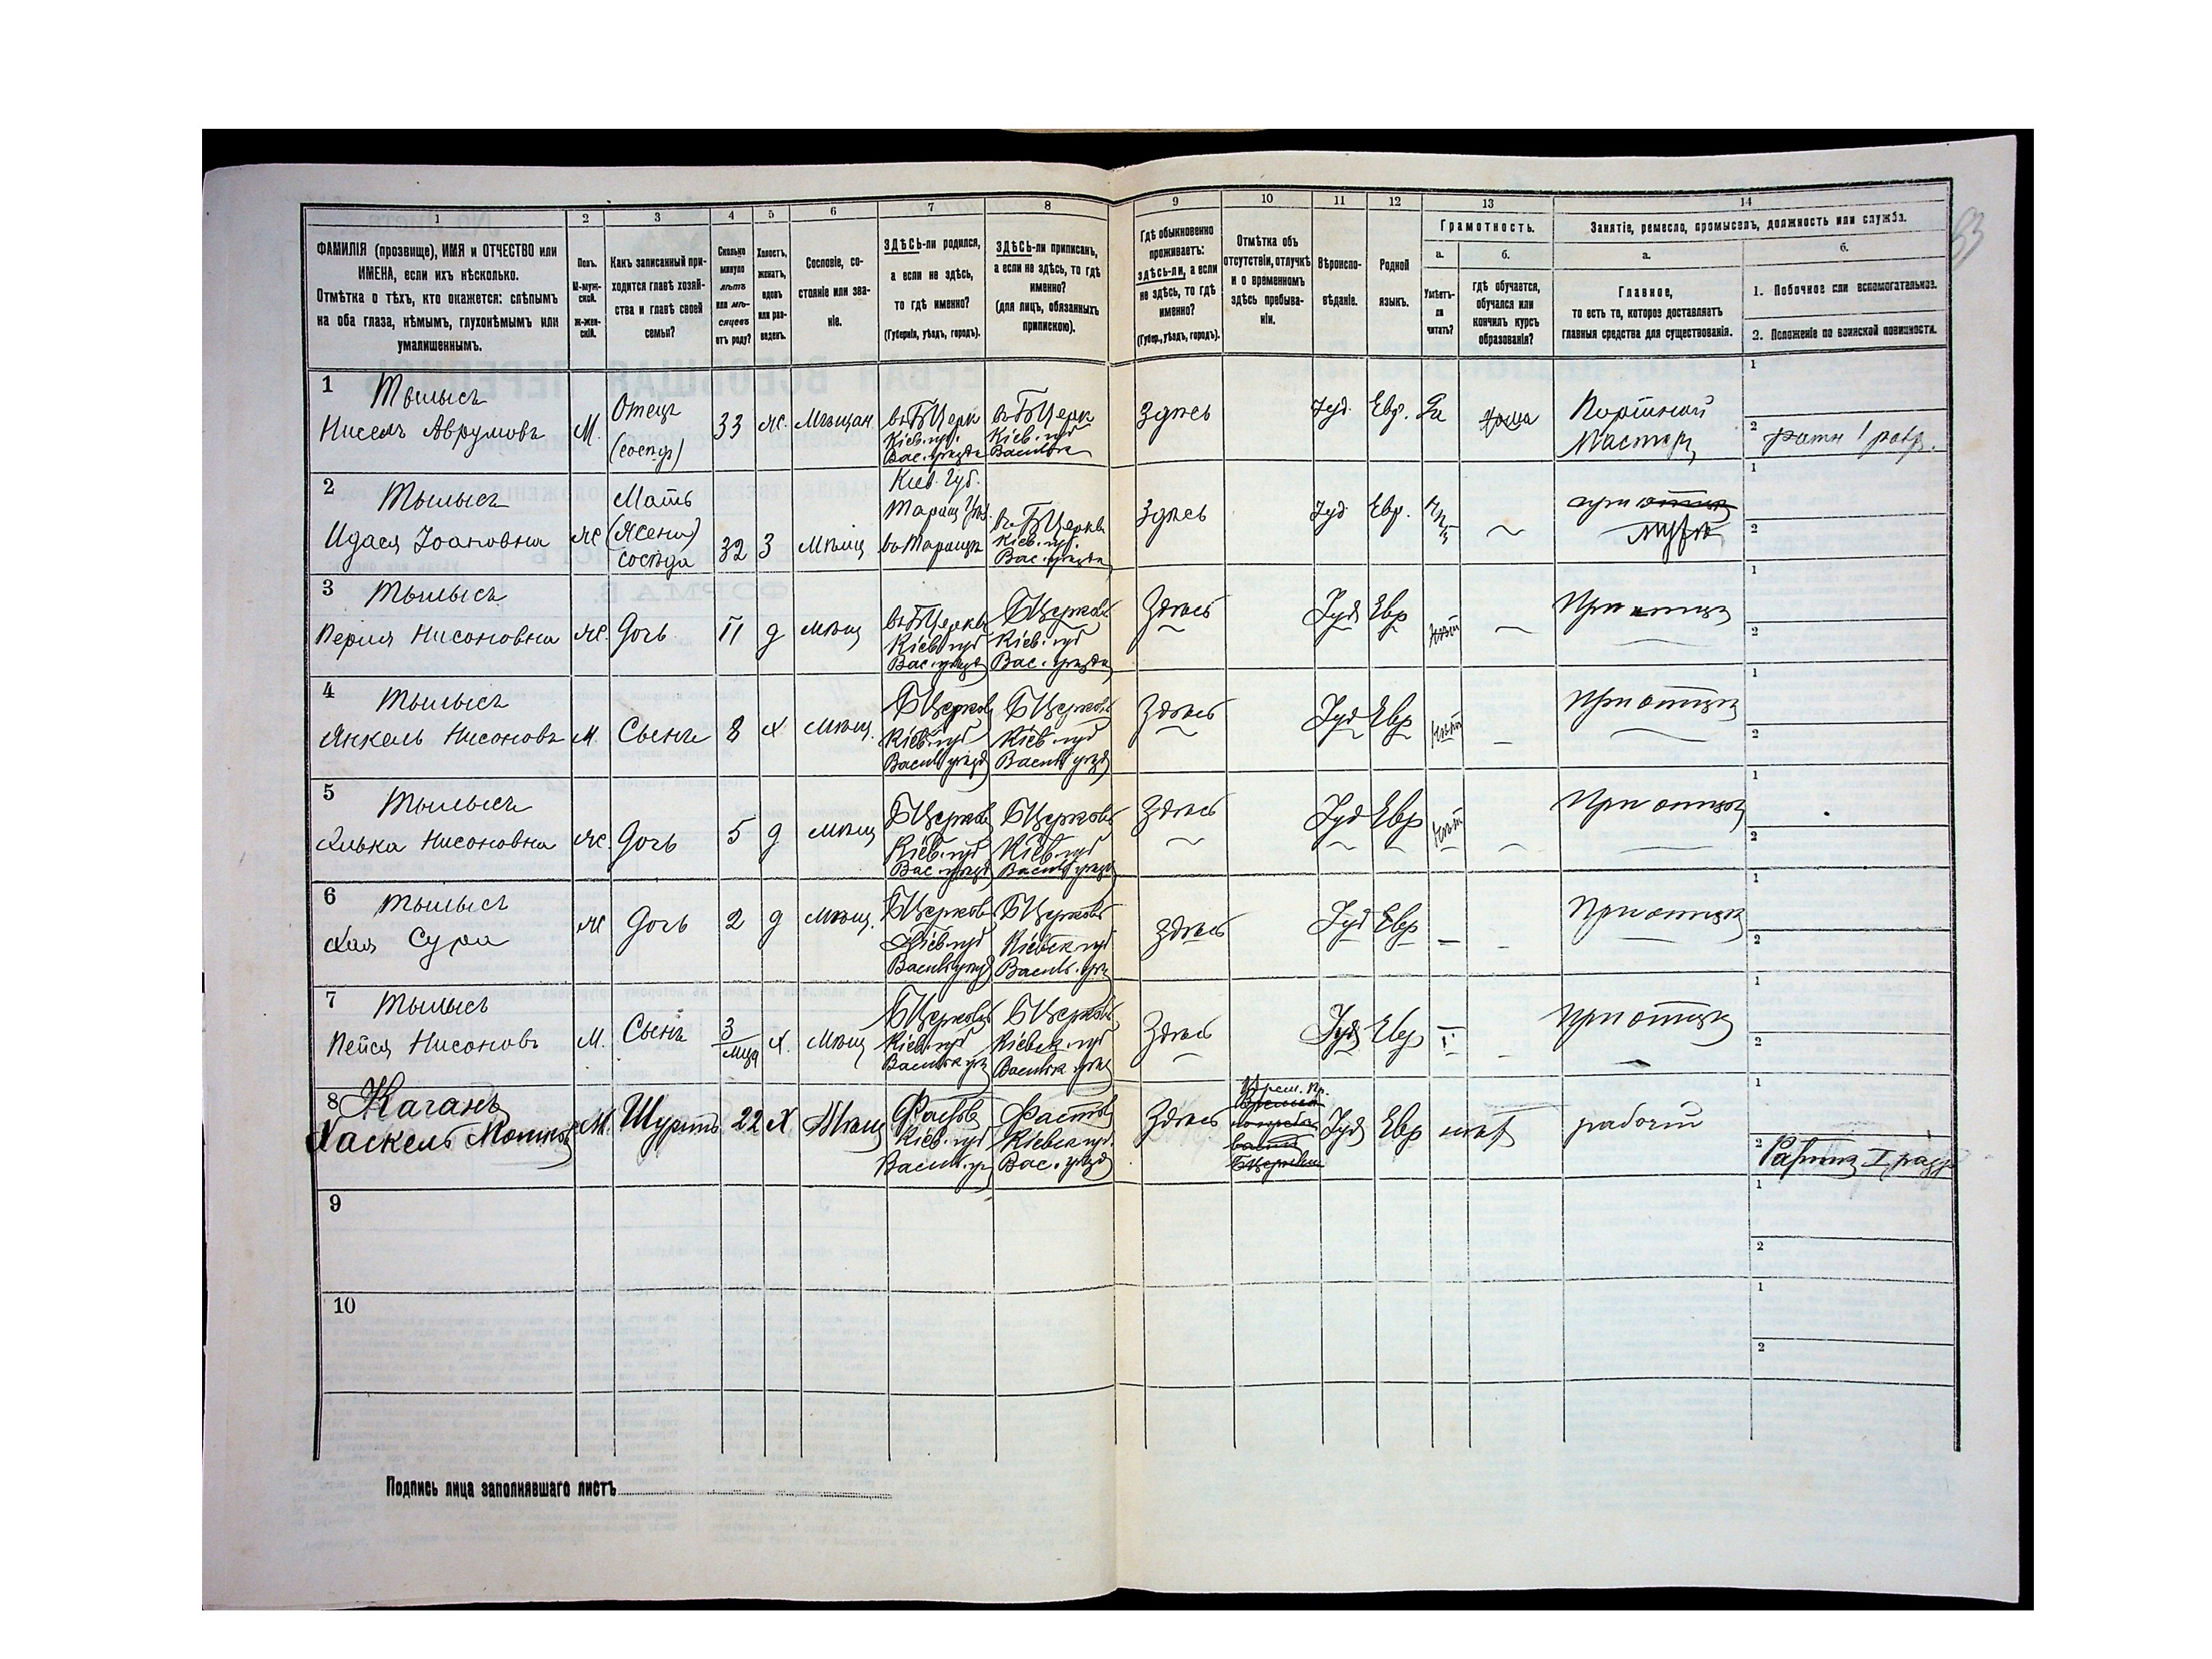 1 2 3 4 5 6 7 8
ФАМИЛІЯ (прозвище), ИМЯ и ОТЧЕСТВО или
ИМЕНА, если ихъ нѣсколько.
Отмѣтка о тѣхъ, кто окажется: слѣпымъ
на оба глаза, нѣмымъ, глухонѣмымъ или
умалишеннымъ.
Полъ.
М-муж-
ской.
Ж-жен-
скій.
Какъ записанный при-
ходится главѣ хозяй-
ства и главѣ своей
семьи?
Сколько
минуло
лѣтъ
или мѣ-
сяцевъ
отъ роду?
Холостъ,
женатъ,
вдовъ
или раз-
веденъ.
Сословіе, со-
стояніе или зва-
ніе.
ЗДѢСЬ-ли родился,
а если не здѣсь,
то гдѣ именно?
(Губернія, уѣздъ, городъ).
ЗДѢСЬ-ли приписанъ,
а если не здѣсь, то гдѣ
именно?
(для лицъ, обязанныхъ
припискою).
9 10 11 12 13 14
Гдѣ обыкновенно
проживаетъ:
здѣсь-ли, а если
не здѣсь, то гдѣ
именно?
(Губер., уѣздъ, городъ).
Отмѣтка объ
отсутствіи, отлучкѣ
и о временномъ
здѣсь пребыва-
ніи.
Вѣроиспо-
вѣданіе.
Родной
языкъ.
Грамотность.
а.
Умѣетъ-
ли
читать?
б.
гдѣ обучается,
обучался или
кончилъ курсъ
образованія?
Занятіе, ремесло, промыселъ, должность или служба.
а.
Главное,
то есть то, которое доставляетъ
главныя средства для существованія.
б.
1. Побочное или вспомогательное.
2. Положеніе по воинской повинности.
1 Тылысъ
Нисель Аврумовъ М. Отецъ 33 ж. Мѣщан
въ БЦерк
Кіев. губ.
Вас. уѣзда
въ БЦерк
Кіев. губ
Здѣсь Іуд. Евр. Да дома Портной
Мастеръ
1
2 ратн 1 разр.
2 Тылысъ
Идася Іоановна Ж Мать
(жена)
сосѣда
32 З Мѣщ
Кіев. Губ.
въ Таращѣ
въ БЦеркв
Кіев. губ.
Вас. уѣзда
Здѣсь Іуд Евр. при
мужѣ
1
2
3 Тылысъ
Перля Нисоновна Ж. Дочь 11 д мѣщ
въ БЦеркв
Кіев губ
Вас. уѣзд
БЦерковь
Кіев. губ
Вас. уѣзда
Здѣсь Іуд Евр нѣт При отцѣ
1
2
4 Тылысъ
Янкель Нисоновъ М. Сынъ 8 х мѣщ.
БЦерковь
Кіев. губ
Васил уѣзд
БЦерковь
Кіев губ
Васил уѣзд
Здѣсь Іуд Евр нѣт При отцѣ
1
2
5 Тылысъ
Хивка Нисоновна Ж. Дочь 5 д мѣщ
БЦерковь
Кіев. губ
Вас уѣзд
БЦерковь
Кіев губ
Васил уѣзд
Здѣсь Іуд Евр нѣт При отцѣ
1
2
6 Тылысъ
Хая Сура Ж Дочь 2 д Мѣщ.
БЦерковь
Кіев губ
БЦерковь
Кіевск губ
Васильк. уѣз
Здѣсь Іуд Евр При отцѣ
1
2
7 Тылысъ
Пейся Нисоновъ М. Сынъ 3 х. Мѣщ
БЦерковь
Кіев. губ
Васильк уѣз
БЦерковь
Кіевск. губ
Васильк уѣз
Здѣсь Іуд Евр При отцѣ
1
2
8 Каганъ
Хаскель Мошков М. Шуринъ 22 Х Мѣщ
Фастов
Кіев. губ
Васильк. уѣ
Фастов
Кіевск губ.
Вас. уѣзд
Здѣсь Іуд Евр нѣт рабочій
1
2
9
1
2
10
1
2
Подпись лица заполнявшаго листъ